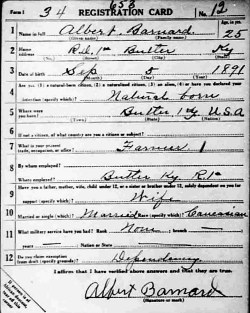 Form 1 34 REGISTRATION CARD 658 No. 12
1 Name in full Albert Barnard Age, in yrs. 25
(Given name) (Family name)
2 Home address R.d. 1 Butler Ky
(No.) (Street) (City) (State)
3 Date of birth Sep 5 1891
(Month) (Day) (Year)
4 Are you (1) a natural-born citizen, (2) a naturalized citizen, (3) an alien, (4) or have you declared your
intention (specify which)? Natural born
5 Where were you born? Butler Ky U.S.A
(Town) (State) (Nation)
6 If not a citizen, of what country are you a citizen or subject?
7 What is your present trade, occupation, or office? Farmer
8 By whom employed?
Where employed? Butler Ky. R 1
9 Have you a father, mother, wife, child under 12, or a sister or brother under 12, solely dependent on you for
support (specify which)? Wife
10 Married or single (which)? Married Race (specify which)? Caucasian
11 What military service have you had? Rank None branch
years Nation or State
12 Do you claim exemption from draft (specify grounds)? Dependency
I affirm that I have verified above answers and that they are true.
Albert Barnard
(Signature or mark)